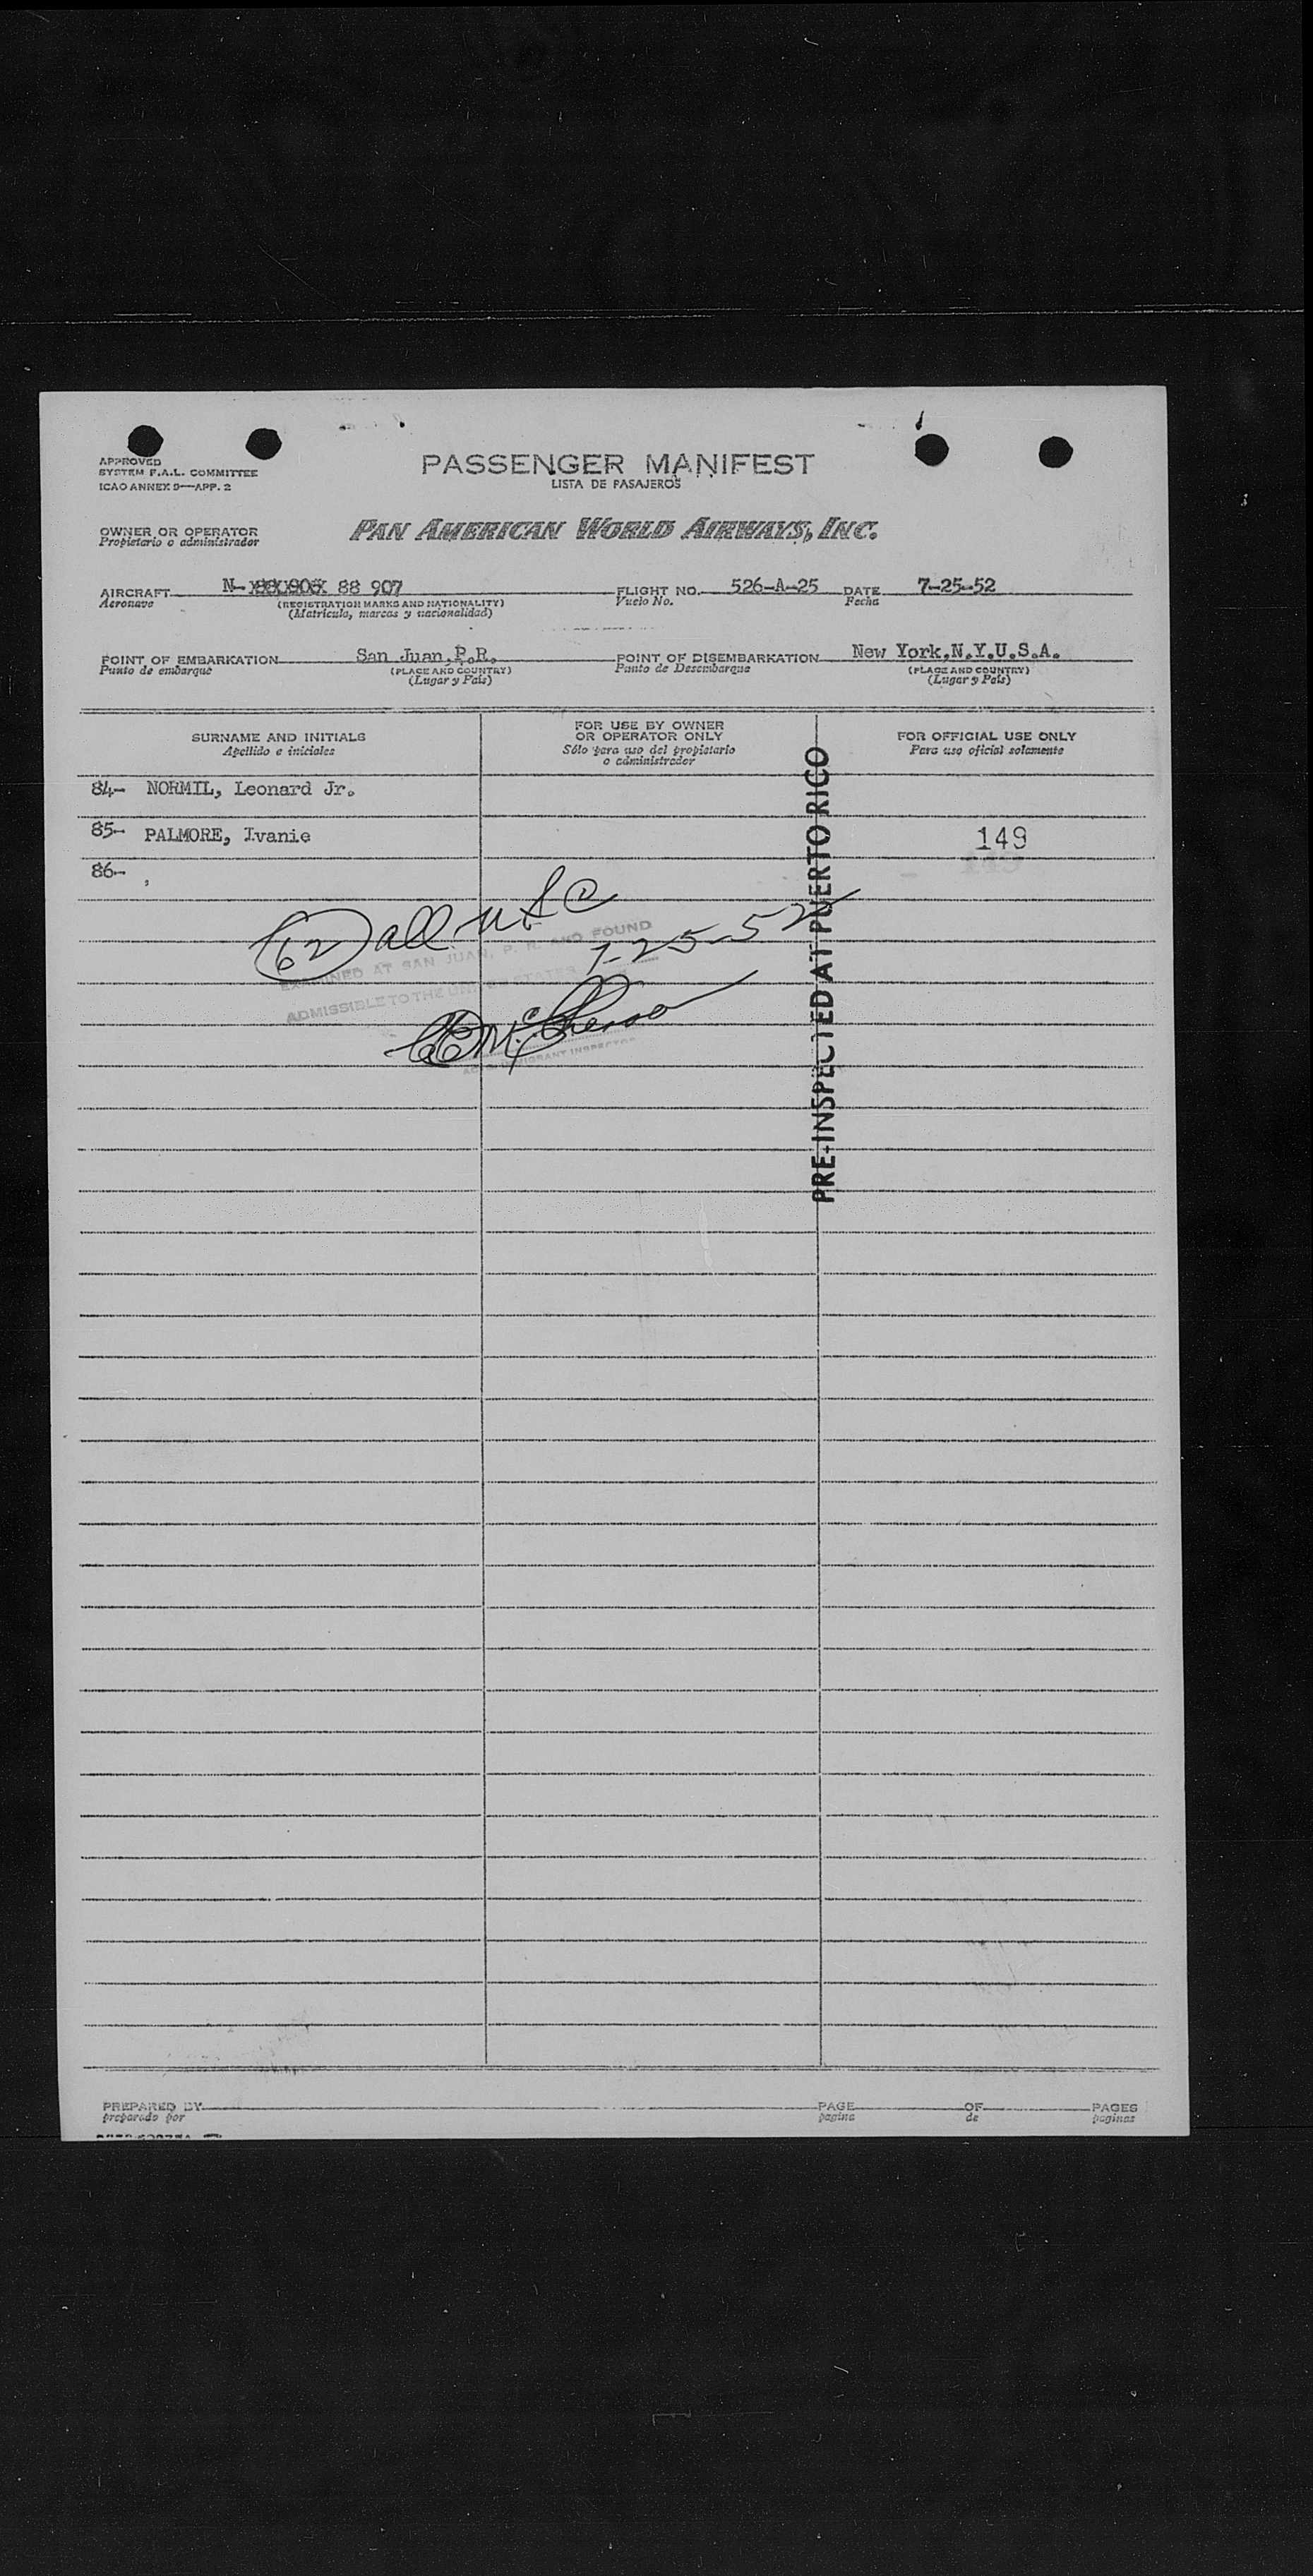 APPROVED
SYSTEM F.A.L. COMMITTEE
ICAO ANNEX 9—APP. 2
PASSENGER MANIFEST
LISTA DE PASAJEROS
OWNER OR OPERATOR
Propietario o administrador
PAN AMERICAN WORLD AIRWAYS, INC.
AIRCRAFT N- 88 907 FLIGHT NO. 526-A-25 DATE 7-25-52
Aeronave (REGISTRATION MARKS AND NATIONALITY) Vuelo No. Fecha
(Matricula, marcas y nacionalidad)
POINT OF EMBARKATION San Juan,P.R. POINT OF DISEMBARKATION New York,N.Y.U.S.A.
Punto de embarque (PLACE AND COUNTRY) Punto de Desembarque (PLACE AND COUNTRY)
(Lugar y País) (Lugar y País)
SURNAME AND INITIALS
Apellido e iniciales
FOR USE BY OWNER
OR OPERATOR ONLY
Sólo para uso del propietario
o administrador
FOR OFFICIAL USE ONLY
Para uso oficial solamente
84- NORMIL, Leonard Jr.
85- PALMORE, Ivanie
149
86- ,
PRE-INSPECTED AT PUERTO RICO
62 all USC
7-25-52
EXAMINED AT SAN JUAN, P. R. AND FOUND
ADMISSIBLE TO THE UNITED STATES
IMMIGRANT INSPECTOR
PREPARED BY PAGE OF PAGES
preparado por pagina de paginas